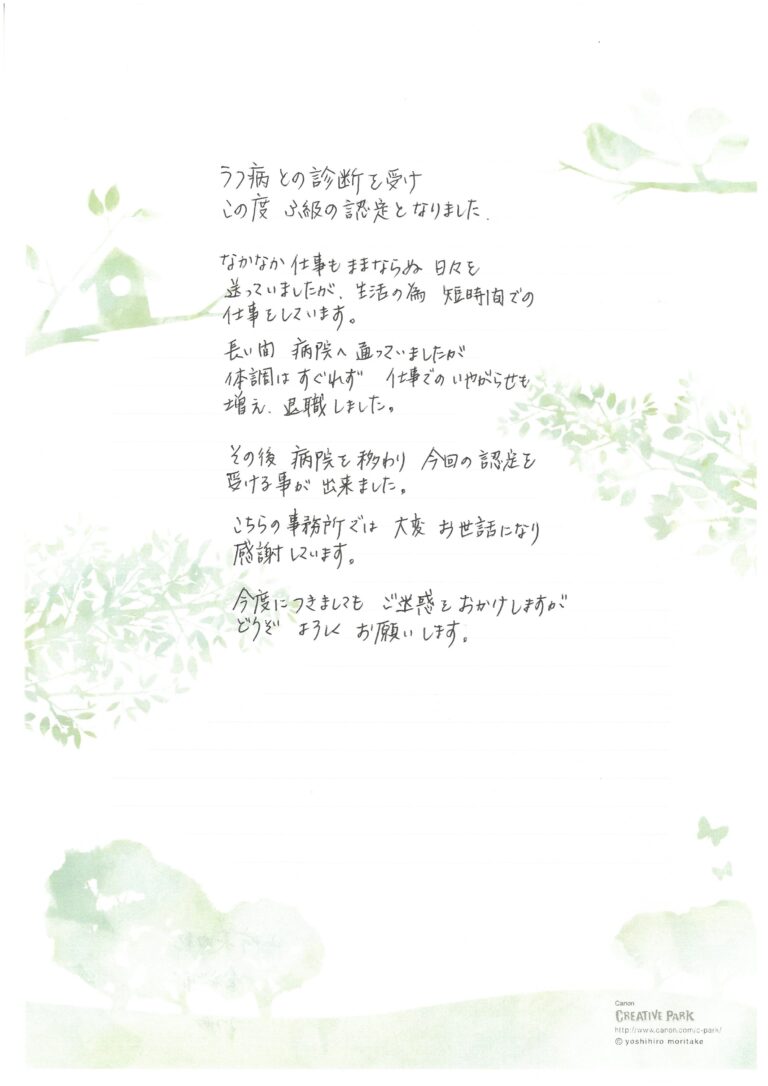 うつ病との診断を受け
この度 2級の認定となりました.
なかなか仕事もままならぬ 日々を
送っていましたが、生活の為 短時間での
仕事をしています。
長い間 病院へ通っていましたが
体調はすぐれず 仕事でのいやがらせも
増え、退職しました。
その後 病院を移わり 今回の認定を
受ける事が出来ました。
こちらの事務所では 大変 お世話になり
感謝しています。
今度につきましても ご迷惑をおかけしますが
どうぞ よろしく お願いします。
Canon
CREATIVE PARK
http://www.canon.com/c-park/
© yoshihiro moritake